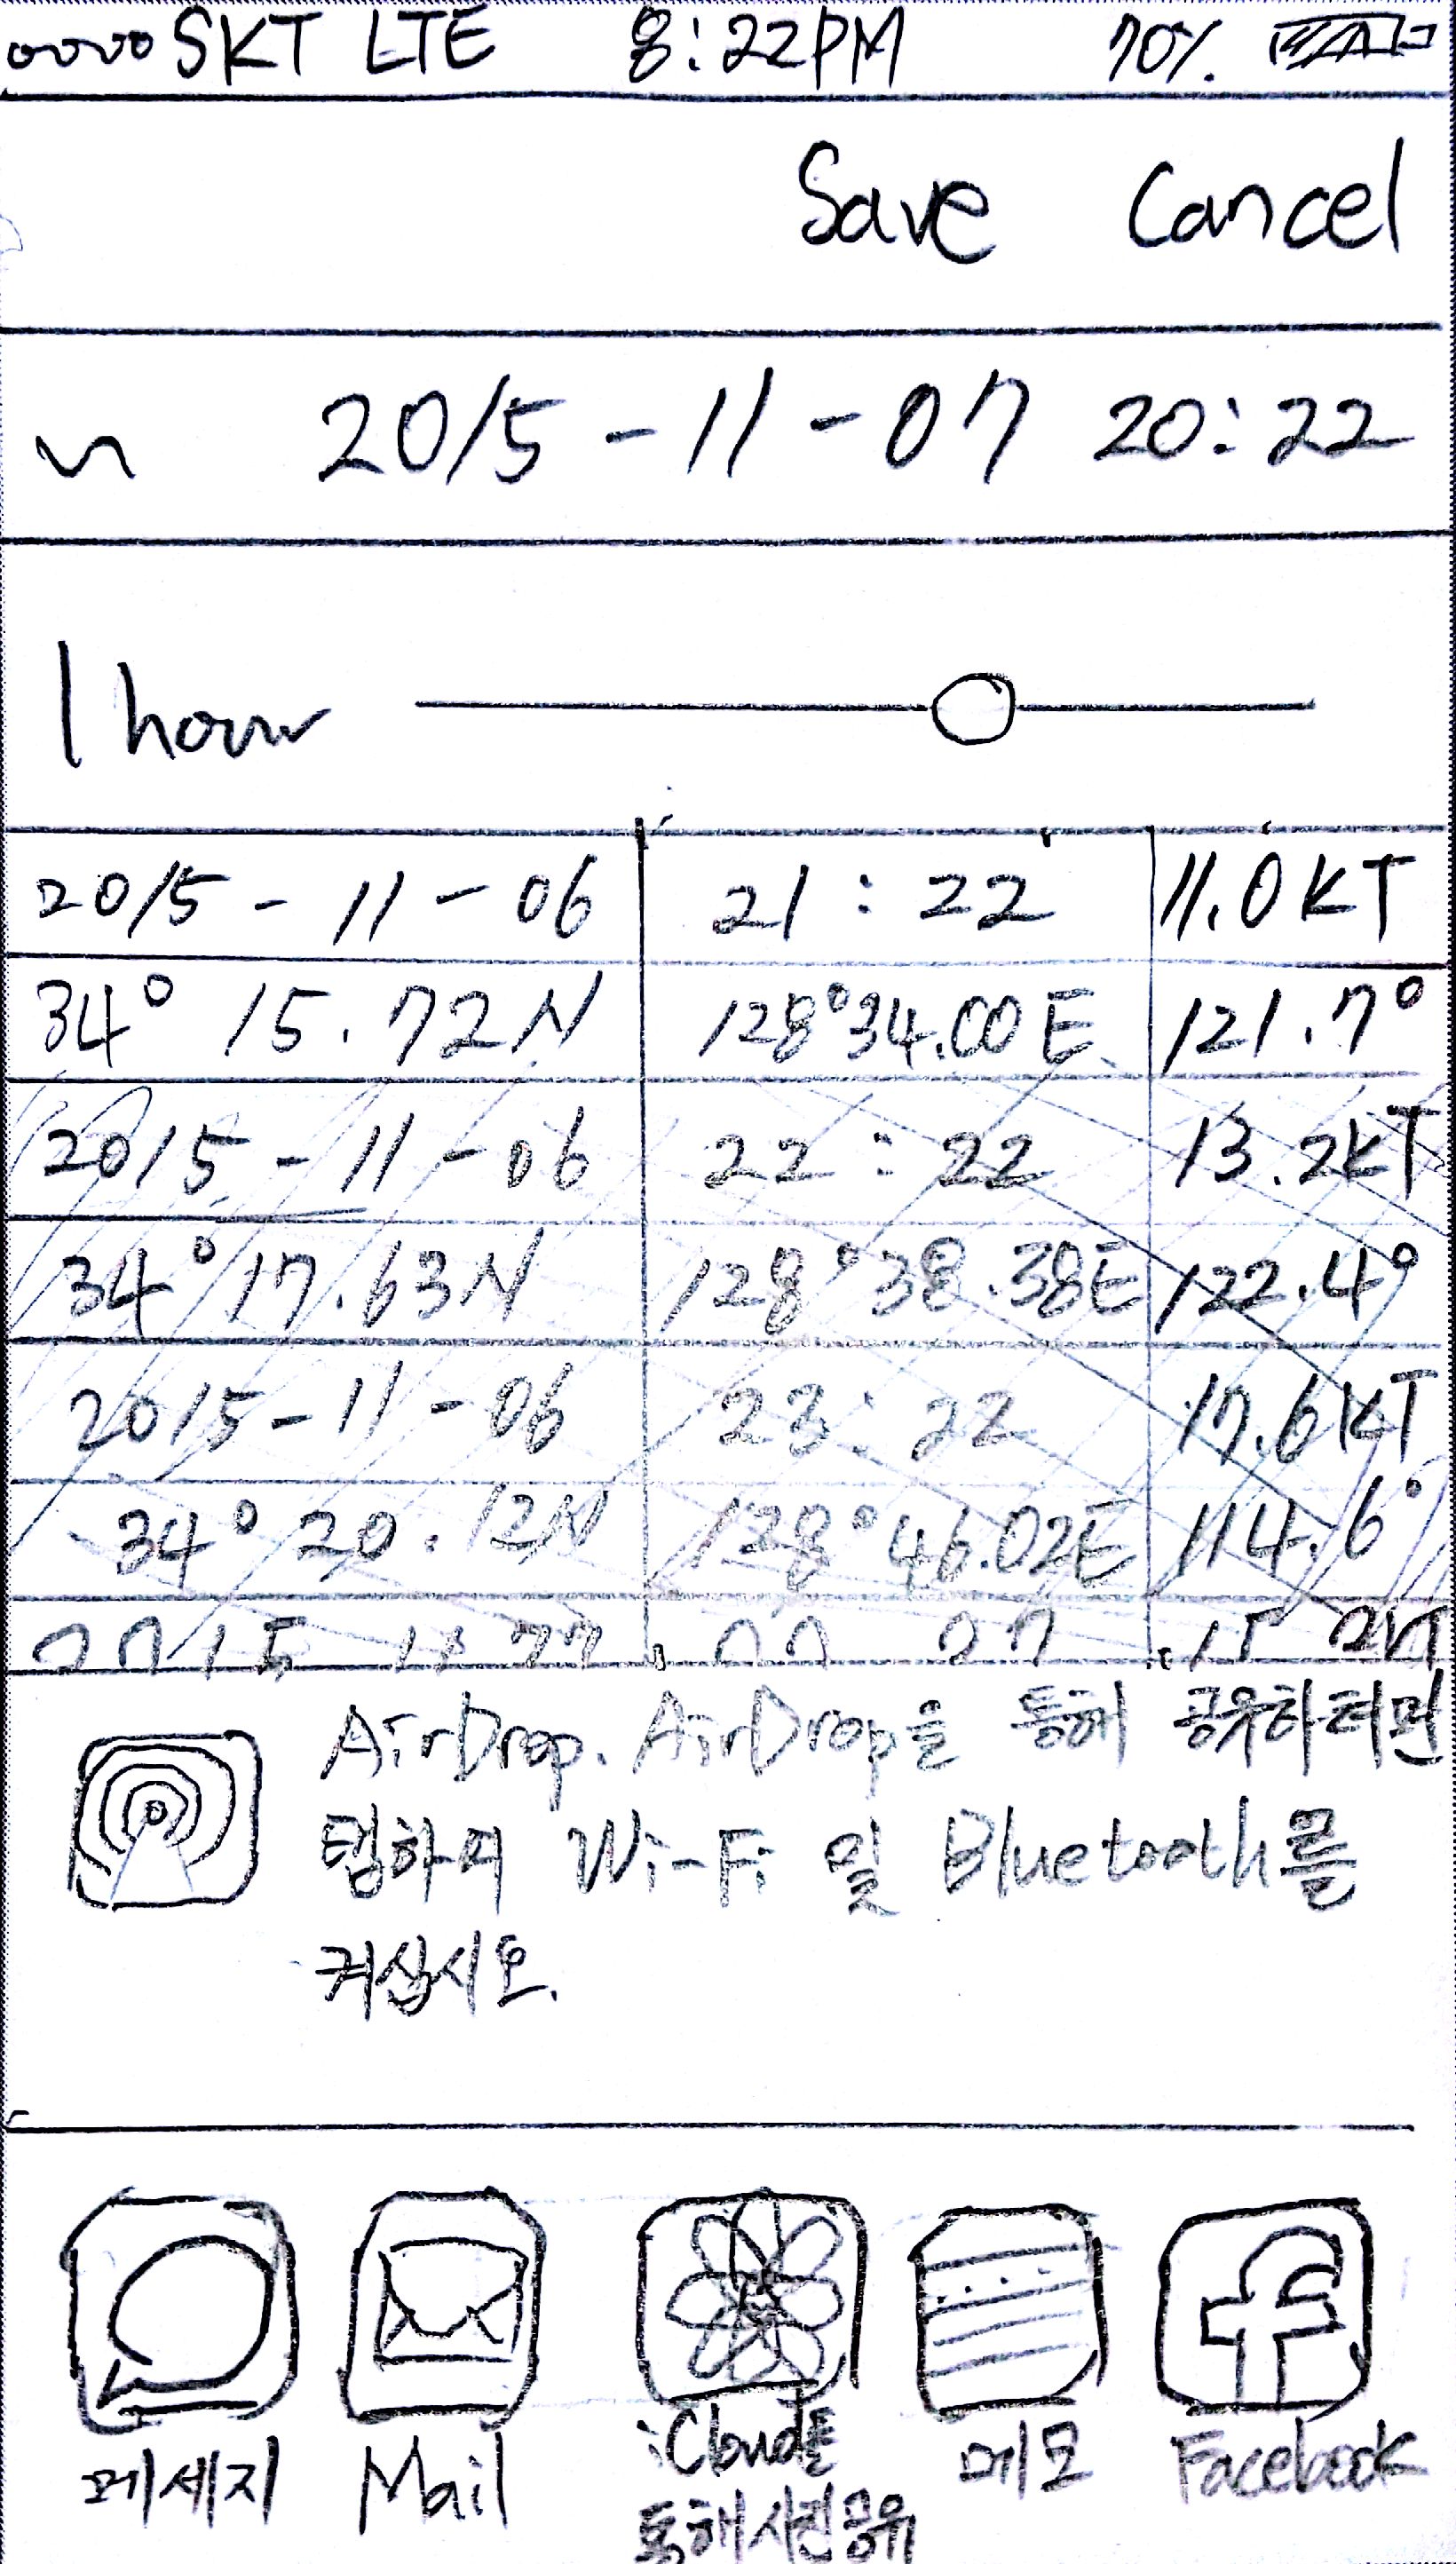 SKT LTE 8:22PM 70%
Save Cancel
~ 2015-11-07 20:22
1 hour
2015-11-06 21:22 11.0KT
34° 15.72N 128°34.00E 121.7°
2015-11-06 22:22 13.2KT
34°17.63N 128°38.38E 122.4°
2015-11-06 23:22 17.6KT
34°20.12N 128°46.02E 114.6°
AirDrop. AirDrop을 통해 공유하려면
탭하여 Wi-Fi 및 Bluetooth를
켜십시오.
메세지 Mail iCloud를 메모 Facebook
통해 사진 공유